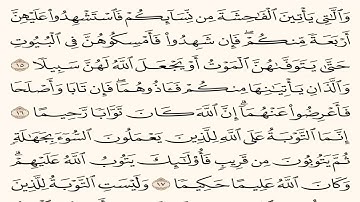 وَٱلَّٰتِي يَأۡتِينَ ٱلۡفَٰحِشَةَ مِن نِّسَآئِكُمۡ فَٱسۡتَشۡهِدُواْ عَلَيۡهِنَّ
أَرۡبَعَةٗ مِّنكُمۡۖ فَإِن شَهِدُواْ فَأَمۡسِكُوهُنَّ فِي ٱلۡبُيُوتِ
حَتَّىٰ يَتَوَفَّىٰهُنَّ ٱلۡمَوۡتُ أَوۡ يَجۡعَلَ ٱللَّهُ لَهُنَّ سَبِيلٗا
١٥ وَٱلَّذَانِ يَأۡتِيَٰنِهَا مِنكُمۡ فَـَٔاذُوهُمَاۖ فَإِن تَابَا وَأَصۡلَحَا
فَأَعۡرِضُواْ عَنۡهُمَآۗ إِنَّ ٱللَّهَ كَانَ تَوَّابٗا رَّحِيمًا ١٦
إِنَّمَا ٱلتَّوۡبَةُ عَلَى ٱللَّهِ لِلَّذِينَ يَعۡمَلُونَ ٱلسُّوٓءَ بِجَهَٰلَةٖ
ثُمَّ يَتُوبُونَ مِن قَرِيبٖ فَأُوْلَٰٓئِكَ يَتُوبُ ٱللَّهُ عَلَيۡهِمۡۗ
وَكَانَ ٱللَّهُ عَلِيمًا حَكِيمٗا ١٧ وَلَيۡسَتِ ٱلتَّوۡبَةُ لِلَّذِينَ